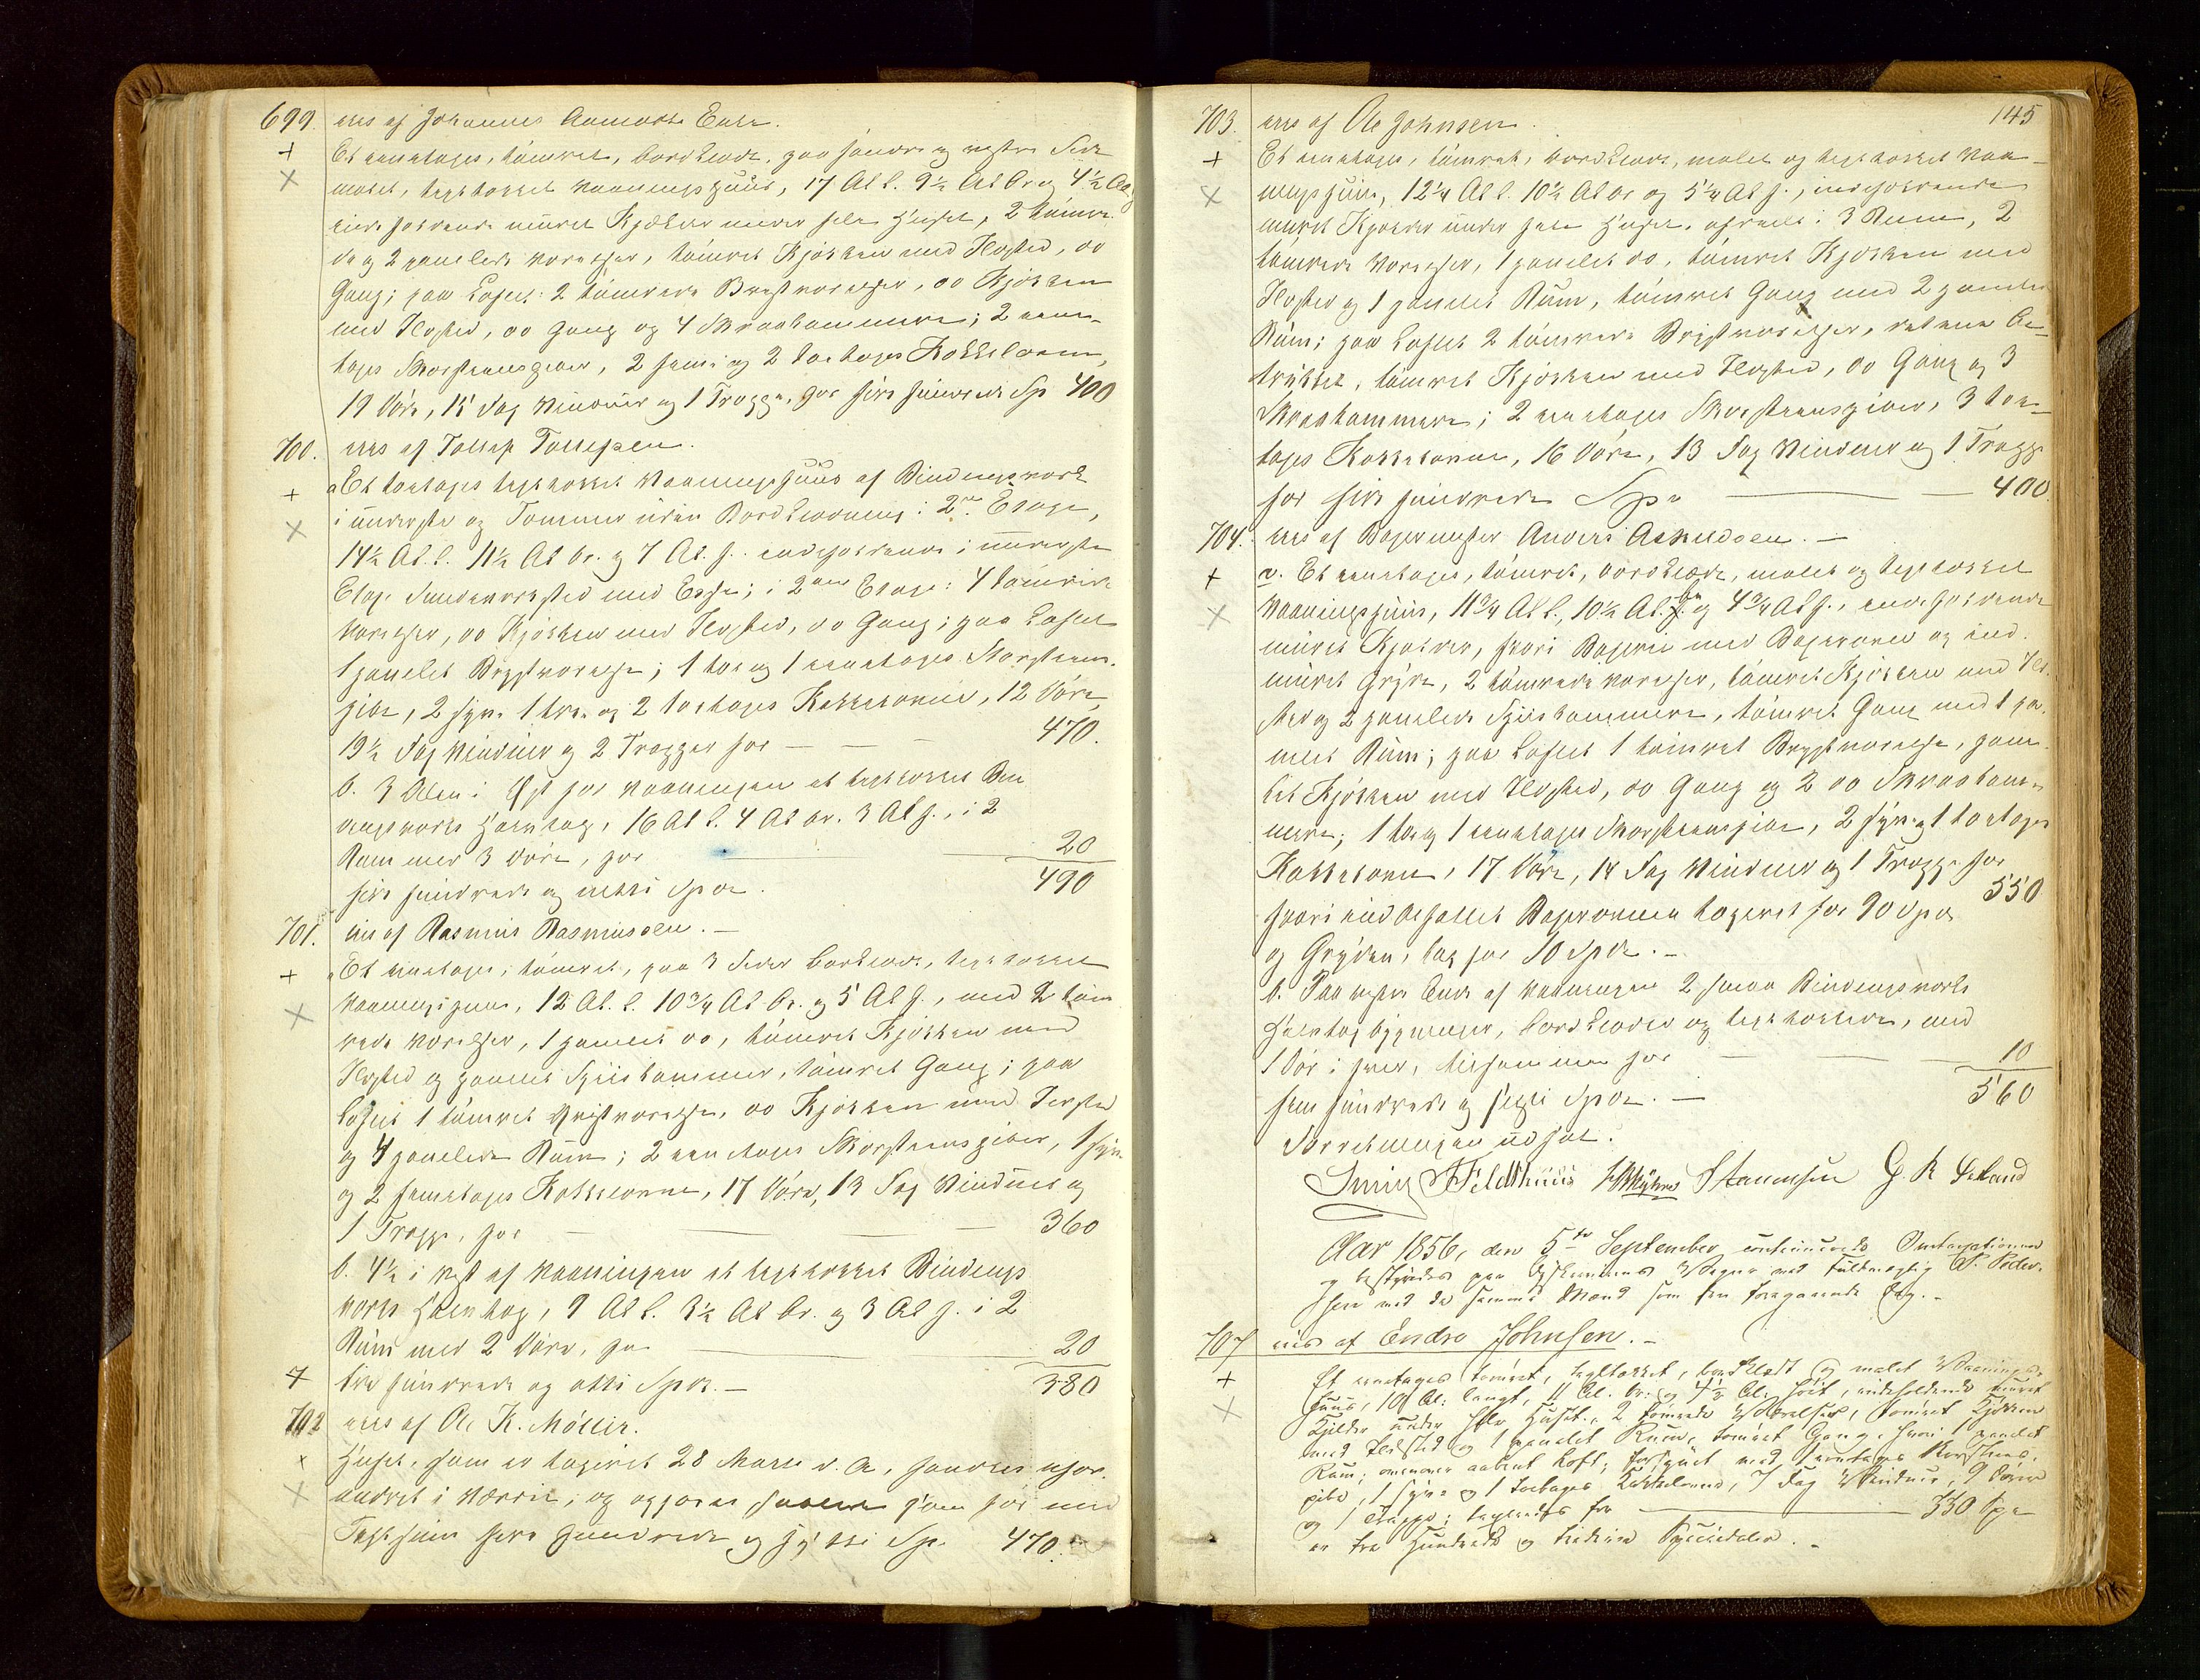 699. eies af Johannes Aamodts Enke.
+ Et eenetages, tømret, bordklædt, paa søndre og vestre Side
× malet, teglhækket Vaaningshuus, 17 Al l. 9½ Al br. og 4½ Al h.
indeholdende muret Kjælder under hele Huset, 2 tømre-
de og 2 panelede Værelser, tømret Kjøkken med Ildsted, do
Gang; paa Loftet: 2 tømrede Brystværelser, do Kjøkken
med Ildsted, do Gang og 4 Skraakammere; 2 eene-
tages Skorsteenspiber, 2 og 2 toetages Kakkelovne,
19 Døre, 15 Fag Vinduer og 1 Trappe, for fire hundrede Sp 400
700. eies af Tollef Tollefsen.
+ a Et toetages teglhækket Vaaningshuus af Bindingsværk
× i underste og Tømmer uden Bordklædning i 2den Etage,
14½ Al. l. 11½ Al br. og 7 Al. h. indeholdende i underste
Etage Smedeværksted med Esse; i 2den Etage: 4 tømrede
Værelser, do Kjøkken med Ildsted, do Gang; paa Loftet
1 panelet Brystværelse; 1 toe og 1 eenetages Skorsteens-
pibe, 2 1 tre og 2 toetages Kakkelovne, 12 Døre,
19½ Fag Vinduer og 2 Trapper for — — — 470.
b. 3 Alen i Øst for Vaaningen et teglhækket Bin
dingsværks Halvtag, 16 Al l. 4 Al br. 3 Al h., i 2
Rum med 3 Døre, for — 20
fire hundrede og nitti Spd. 490
701. eies af Rasmus Rasmussen. —
+ a Et eenetages, tømret, paa 3 Sider bordklædt, teglhækket
× Vaaningshuus, 12 Al. l. 10¾ Al br. og 5 Al h., med 2 tøm
rede Værelser, 1 panelet do, tømret Kjøkken med
Ildsted og panelet Spiiskammer, tømret Gang; paa
Loftet 1 tømret Brystværelse, do Kjøkken med Ildsted
og 4 panelede Rum; 2 eenetages Skorsteenspiber, 1
og 2 Kakkelovne, 17 Døre, 13 Fag Vinduer og
1 Trappe, for — 360
b. 4½ i Vest af Vaaningen et teglhækket Bindings
værks Halvtag, 9 Al l. 3½ Al br. og 3 Al h. i 2
Rum med 2 Døre, for — 20
+ tre hundrede og otti Spd. — 380
702 eies af Ole K. Møller.
× Huset, som er taxeret 28 Marts d. A, fandtes ufor-
× andret i Værdie, og opføres saaledes som før med
Taxtsum fire hundrede og sytti Sp. 470.
145
703. eies af Ole Johnsen.
+ Et eenetages, tømret, bordklædt, malet og teglhækket Vaa-
× ningshuus, 12¼ Al l. 10½ Al br og 5¼ Al h., indeholdende
muret Kjælder under hele Huset, afdeelt i 3 Rum, 2
tømrede Værelser, 1 panelet do, tømret Kjøkken med
Ildsted og 1 panelet Rum, tømret Gang med 2 panelede
Rum; paa Loftet 2 tømrede Brystværelser, det ene be-
trukket, tømret Kjøkken med Ildsted, do Gang og 3
Skraakammere; 2 eenetages Skorsteenspiber, 3 toe-
tages Kakkelovne, 16 Døre, 13 Fag Vinduer og 1 Trappe
for fire hundrede Spd — 400.
704. eies af Bagermester Anders Asmundsen. —
+ a. Et eenetages, tømret, bordklædt, malet og teglhækket
× Vaaningshuus, 11¾ Al l., 10½ Al. br og 4¾ Al h., indeholdende
muret Kjælder, hvori Bagerie med Bagerovn og ind-
muret Gryde, 2 tømrede Værelser, tømret Kjøkken med Ild-
sted og 2 panelede Spiiskammere, tømret Gang med 1 pa-
nelet Rum; paa Loftet 1 tømret Brystværelse, pane-
let Kjøkken med Ildsted, do Gang og 2 do Skraakam-
mere; 1 toe og 1 eenetages Skorsteenspibe, 2 og 1 toetages
Kakkelovne, 17 Døre, 14 Fag Vinduer og 1 Trappe for
hvori indbefattet Bagerovnen taxeret for 90 Spd. 550
og Gryden, tax for 10 Spd. —
b. Paa vestre Ende af Vaaningen 2 smaa Bindingsværks
Halvtagbygninger, bordklædte og teglhækkede, med
1 Dør i hver, tilsammen for — 10
fem hundrede og sexti Spd. — 560
Forretningen udsat.
Smith Feldthuus Stamnesen G. R. Leland
Aar 1856, den 5te September continueredes Omtaxtionen
og bestyredes paa Lysteminens Vegne ved Fuldmægtig P. Peder-
sen med de samme Mænd som den foregaaende Dag. —
707 eies af Endre Johnsen. —
+ Et eenetages tømret, teglhækket, bordklædt og malet Vaanings-
× huus, 10 Al: langt, 11 Al. br: og 4½ Al: høit, indeholdende muret
Kjelder under hele Huset, 2 tømrede Værelser, tømret Kjøkken
med Ildsted og 1 panelet Rum, tømret Gang, hvori 1 panelet
Rum; ovenover aabent Loft; forsynet med 1 eenetages Skorsteens-
pibe, 1 og 1 toetages Kakkelovne, 7 Fag Vinduer, 9 Døre
og 1 Trappe; for — 330 Spd
er tre Hundrede og tredive Speciedaler. —